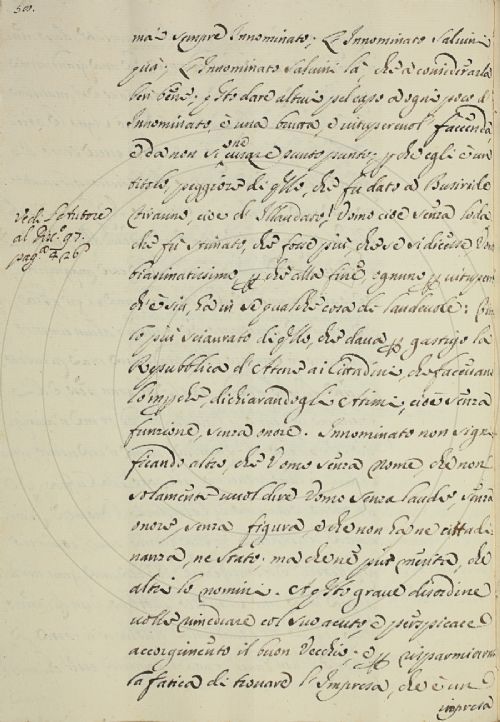 500.
ma' sempre Innominato; L'Innominato Salvini
qua'; L'Innominato Salvini là, che a considerarla
ben bene; questo dare altrui pel capo a ogni poco d'
Innominato, è una brutta, e vituperevol' facenda
e da non si usare punto punto, perche egli è un
titolo, peggiore di quello, che fu dato a Busiride
tiranno, cioè d'Illaudato! Uomo cioè senza lode
che fu stimato, che fosse più che se si dicesse
biasimatissimo, perche alla fine, ognuno per vituperoso
ch'e' sia, ha in se qualche cosa di laudevole:
lo più sciaurato di quello, che dava per gastigo la
Repubblica d'Attene ai Cittadini, che facevano
dichiarandogli Atimi, cioè senza
funzione, senza onore. Innominato non signi
ficando altro, che Uomo senza nome, che non
solamente vuol dire Uomo senza laude, senza
onore, senza figura, e che non ha ne cittadi
nanza, ne stato. ma che ne' più merita, che
altri lo nomini. A questo grave disordine
volle rimediare col suo acuto, e perspicace
accorgimento il buon Vecchio; e per risparmiarvi
la fatica di trovare l'Impresa, che è un
impresa
Vedi L'Autore
al
pag.e 226